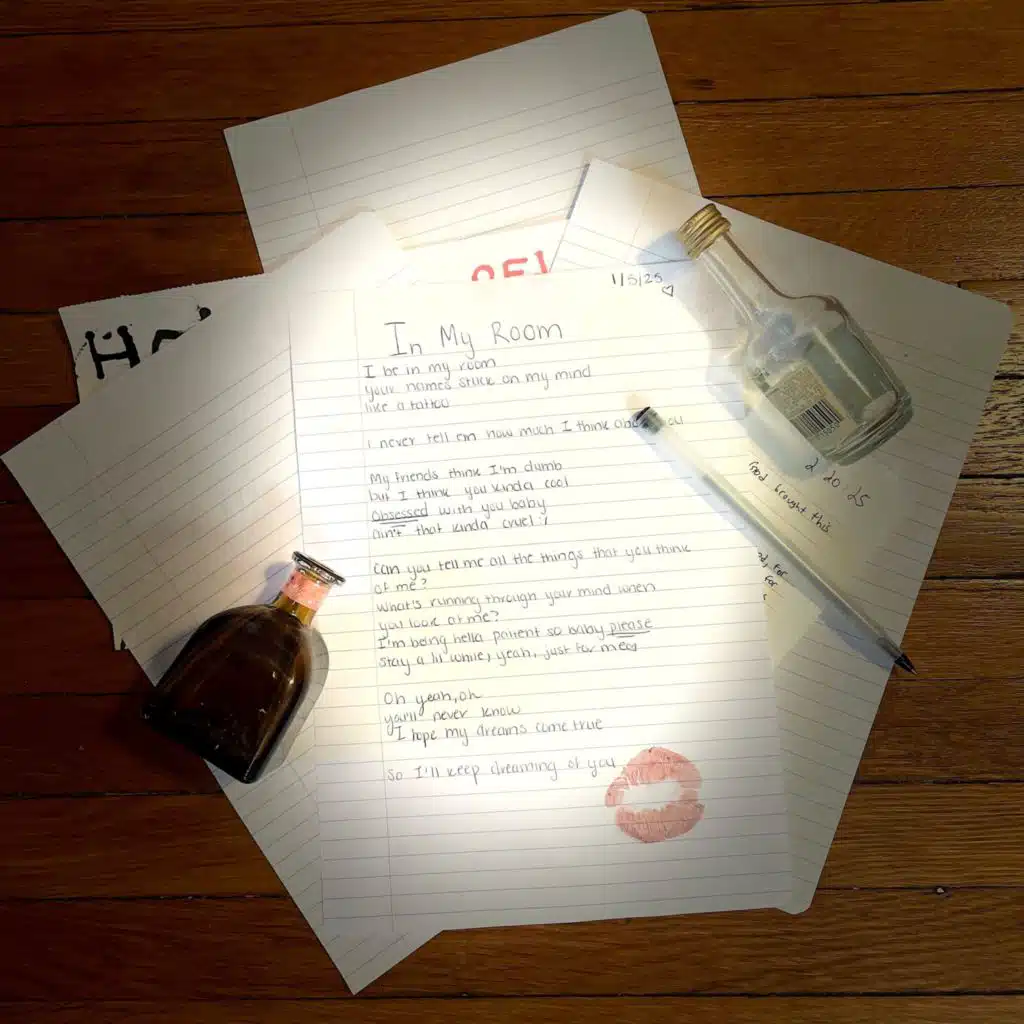 1/5/25
In My Room
I be in my room
your names stuck on my mind
like a tattoo
I never tell em how much I think
My friends think I'm dumb
but I think you kinda cool
Obsessed with you baby
ain't that kinda cruel :/
Can you tell me all the things that you think
of me?
What's running through your mind when
you look at me?
I'm being hella patient so baby please
stay a lil while, yeah, just for me
Oh yeah, oh
you'll never know
I hope my dreams come true
So I'll keep dreaming of you
2 20 25
God brought this
for
for